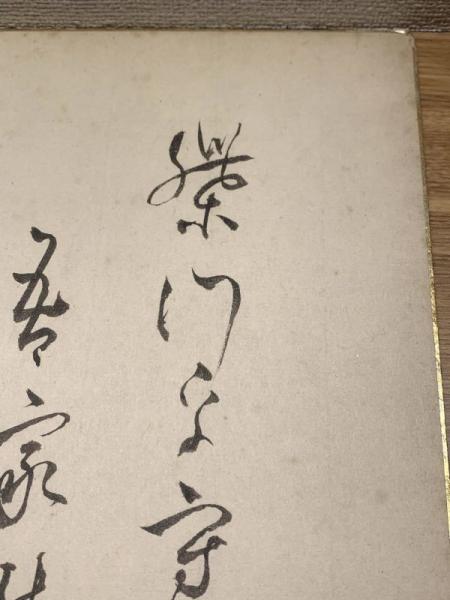 柴門乎守
吾家